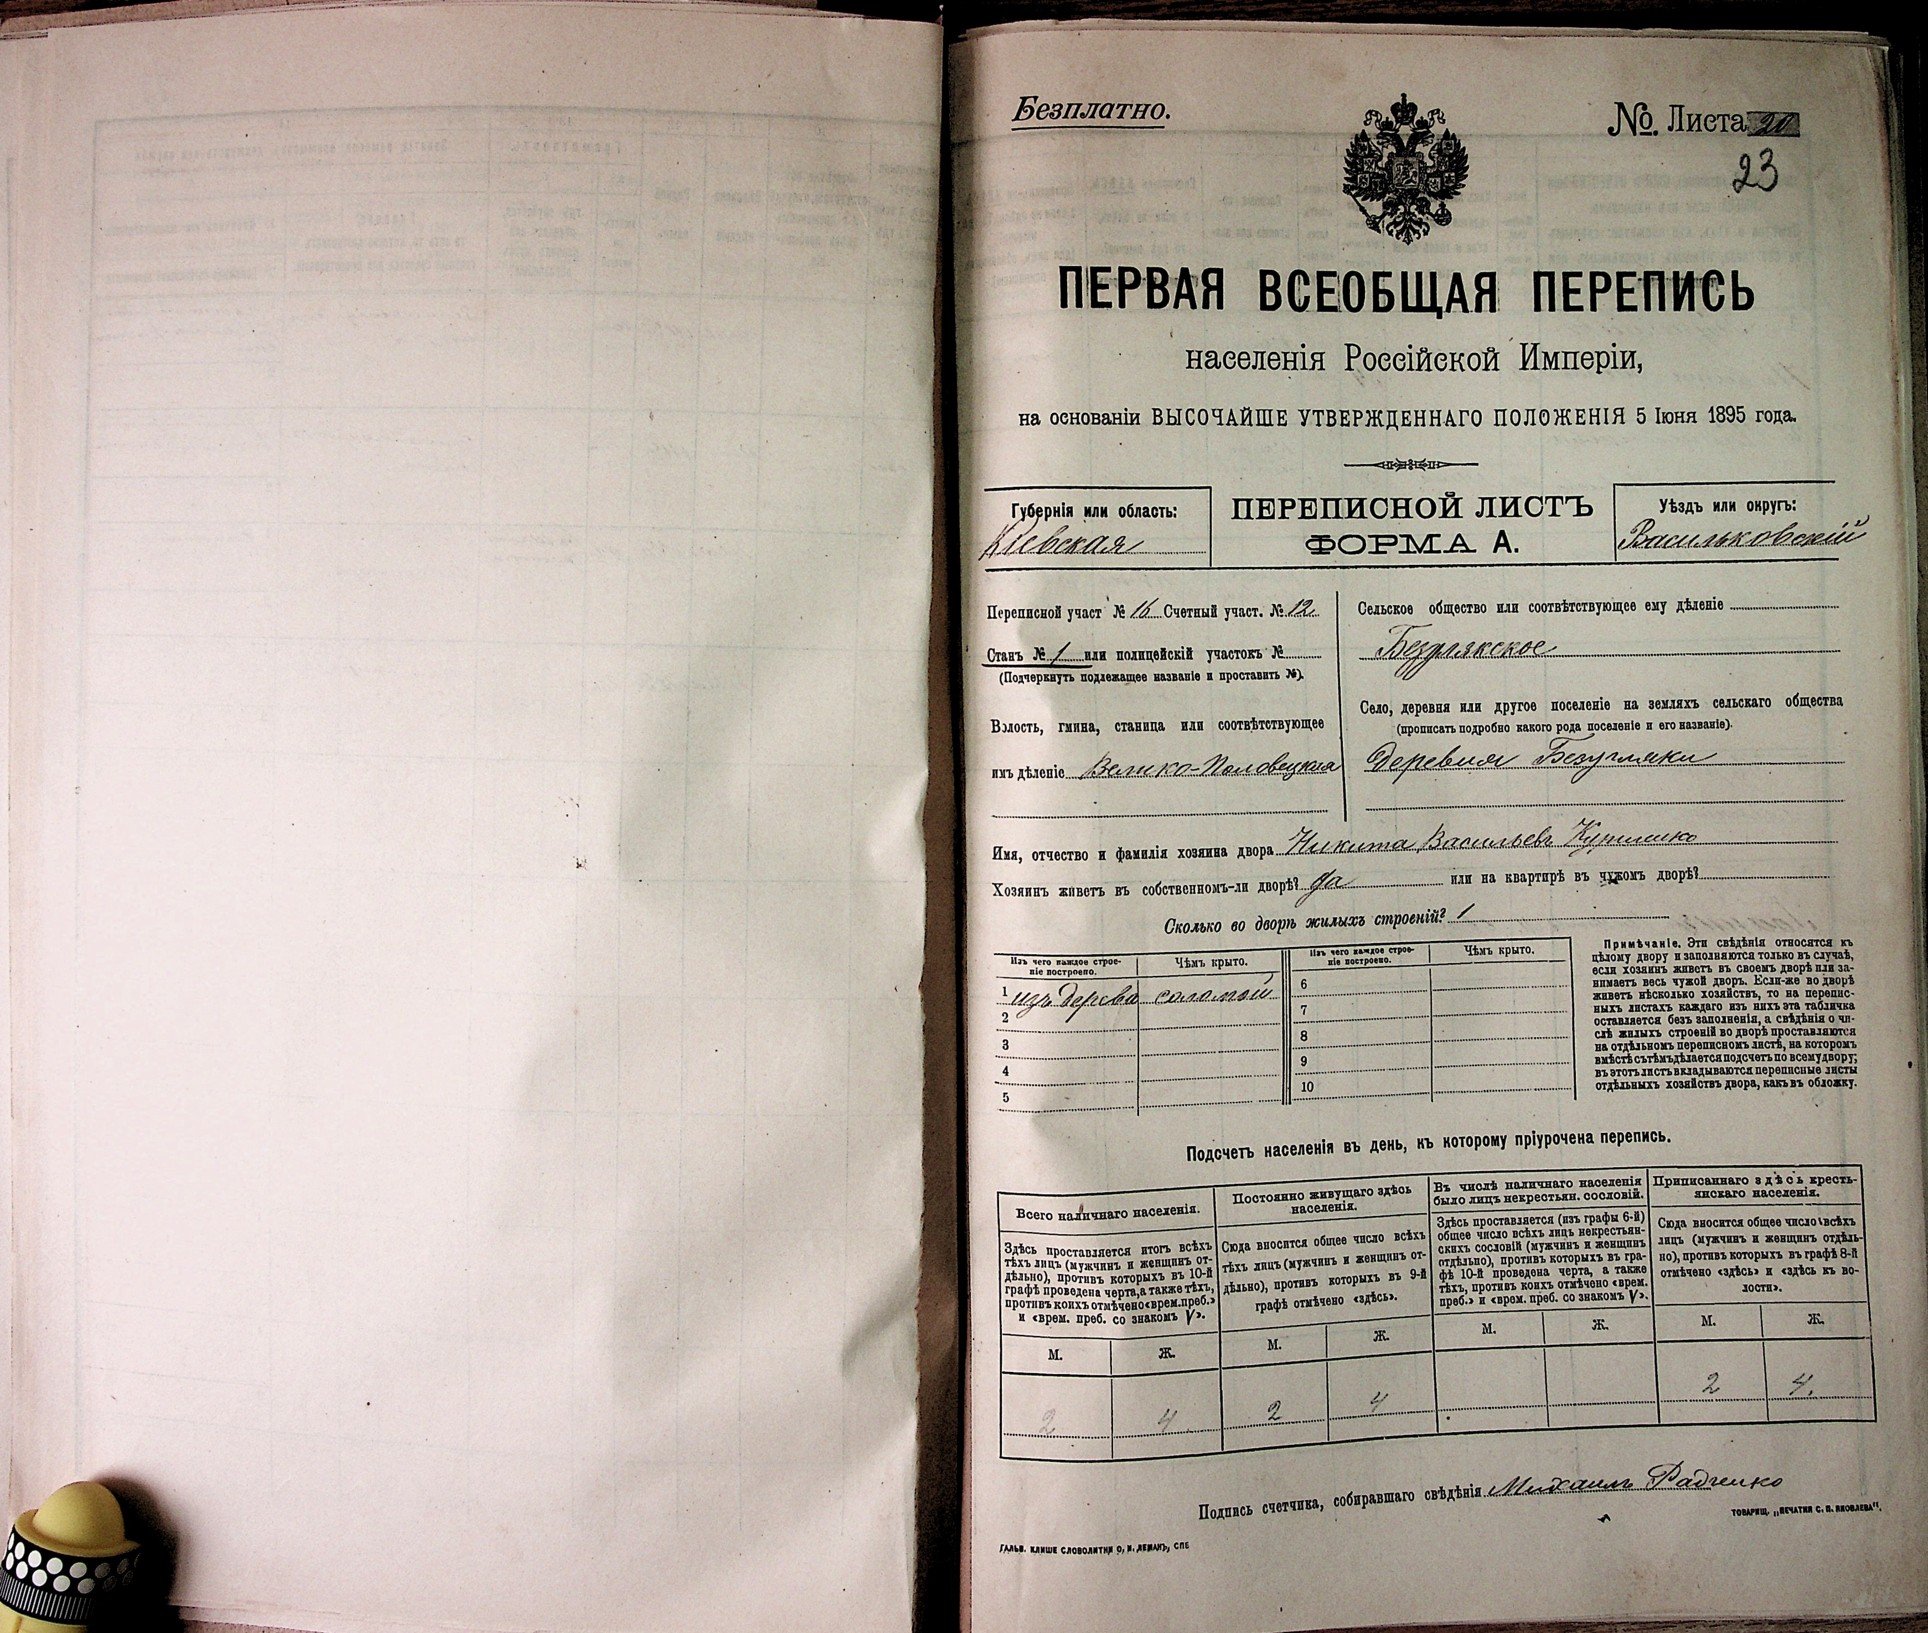 Безплатно.
№. Листа 20
23
ПЕРВАЯ ВСЕОБЩАЯ ПЕРЕПИСЬ
населенія Россійской Имперіи,
на основаніи ВЫСОЧАЙШЕ УТВЕРЖДЕННАГО ПОЛОЖЕНІЯ 5 Іюня 1895 года.
Губернія или область:
Кіевская
ПЕРЕПИСНОЙ ЛИСТЪ
ФОРМА А.
Уѣздъ или округъ:
Васильковскій
Переписной участ № 16 Счетный участ. № 12
Станъ № 1 или полицейскій участокъ №
(Подчеркнуть подлежащее названіе и проставить №).
Волость, гмина, станица или соотвѣтствующее
имъ дѣленіе Велико-Половецкая
Сельское общество или соотвѣтствующее ему дѣленіе
Безуглякское
Село, деревня или другое поселеніе на земляхъ сельскаго общества
(прописать подробно какого рода поселеніе и его названіе).
Деревня Безугляки
Имя, отчество и фамилія хозяина двора Никита Васильевъ
Хозяинъ живетъ въ собственномъ-ли дворѣ? да или на квартирѣ въ чужомъ дворѣ?
Сколько во дворѣ жилыхъ строеній? 1
Изъ чего каждое строе-
ніе построено.
Чѣмъ крыто.
1 изъ дерева соломой
2
3
4
5
Изъ чего каждое строе-
ніе построено.
Чѣмъ крыто.
6
7
8
9
10
Примѣчаніе. Эти свѣдѣнія относятся къ
цѣлому двору и заполняются только въ случаѣ,
если хозяинъ живетъ въ своемъ дворѣ или за-
нимаетъ весь чужой дворъ. Если-же во дворѣ
живетъ нѣсколько хозяйствъ, то на перепис-
ныхъ листахъ каждаго изъ нихъ эта табличка
оставляется безъ заполненія, а свѣдѣнія о чи-
слѣ жилыхъ строеній во дворѣ проставляются
на отдѣльномъ переписномъ листѣ, на которомъ
вмѣстѣ съ тѣмъ дѣлается подсчетъ по всему двору;
въ этотъ листъ вкладываются переписные листы
отдѣльныхъ хозяйствъ двора, какъ въ обложку.
Подсчетъ населенія въ день, къ которому пріурочена перепись.
Всего наличнаго населенія.
Здѣсь проставляется итогъ всѣхъ
тѣхъ лицъ (мужчинъ и женщинъ от-
дѣльно), противъ которыхъ въ 10-й
графѣ проведена черта, а также тѣхъ,
противъ коихъ отмѣчено «врем. преб.»
и «врем. преб. со знакомъ V».
М. Ж.
2 4
Постоянно живущаго здѣсь
населенія.
Сюда вносится общее число всѣхъ
тѣхъ лицъ (мужчинъ и женщинъ от-
дѣльно), противъ которыхъ въ 9-й
графѣ отмѣчено «здѣсь».
М. Ж.
2 4
Въ числѣ наличнаго населенія
было лицъ некрестьян. сословій.
Здѣсь проставляется (изъ графы 6-й)
общее число всѣхъ лицъ некрестьян-
скихъ сословій (мужчинъ и женщинъ
отдѣльно), противъ которыхъ въ гра-
фѣ 10-й проведена черта, а также
тѣхъ, противъ коихъ отмѣчено «врем.
преб.» и «врем. преб. со знакомъ V».
М. Ж.
Приписаннаго здѣсь кресть-
янскаго населенія.
Сюда вносится общее число всѣхъ
лицъ (мужчинъ и женщинъ отдѣль-
но), противъ которыхъ въ графѣ 8-й
отмѣчено «здѣсь» и «здѣсь къ во-
лости».
М. Ж.
2 4.
Подпись счетчика, собиравшаго свѣдѣнія Михаилъ Радченко
ТОВАРИЩ. „ПЕЧАТНЯ С. П. ЯКОВЛЕВА".
ГАЛЬВ. КЛИШЕ СЛОВОЛИТНИ О. И. ЛЕМАНЪ, СПБ